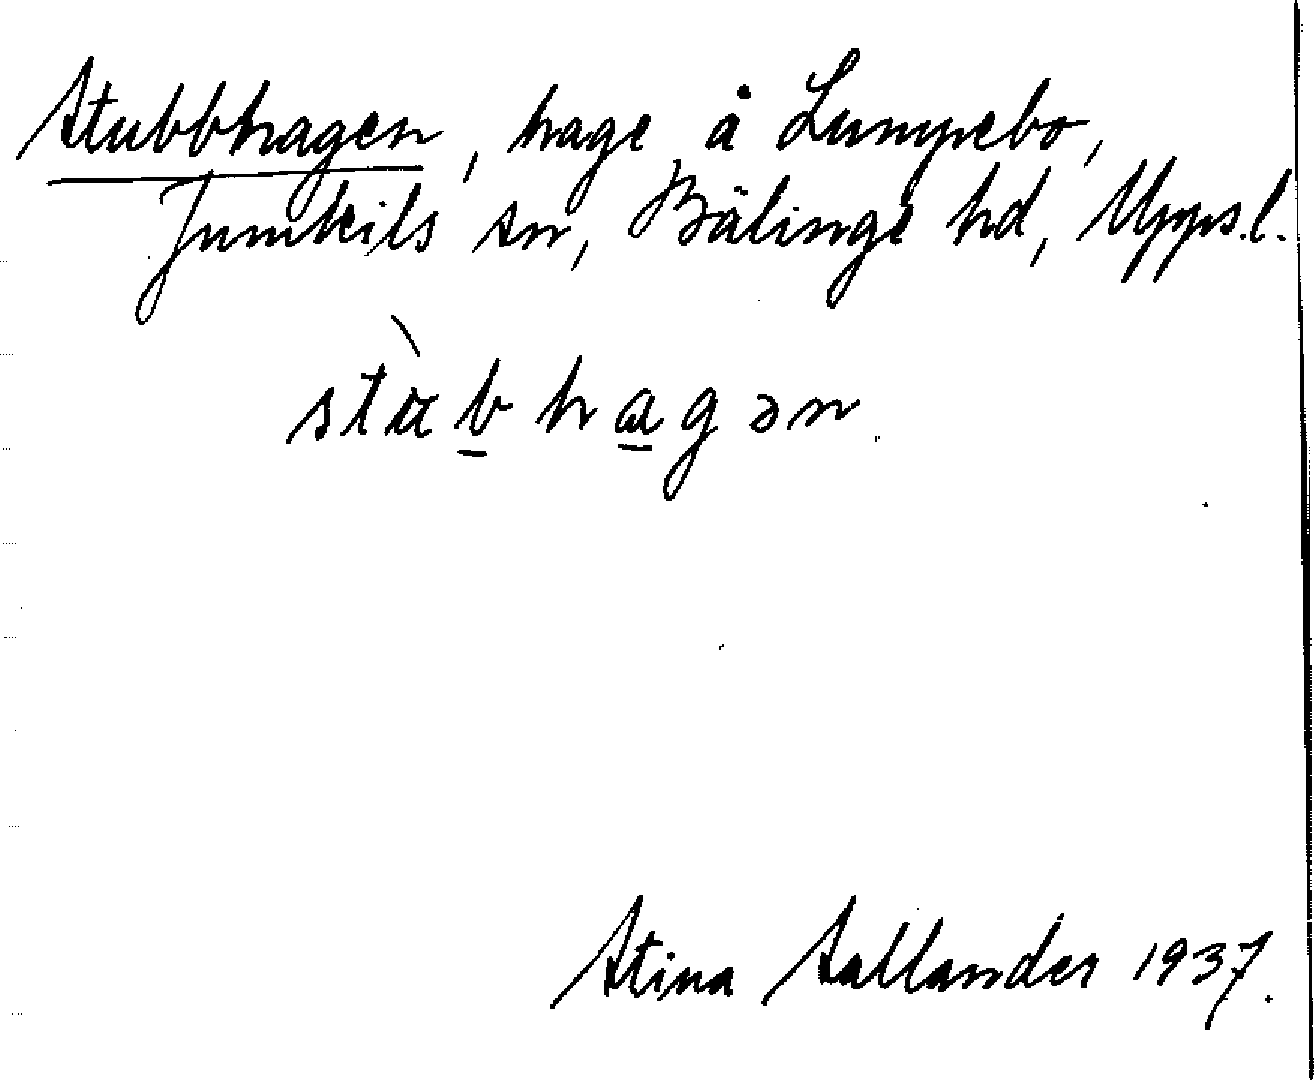 Stubbhagen, hage å Lumpebo,
Jumkils sn, Bälinge hd, Upps.l.
stùbhagən
Stina Sallander 1937.